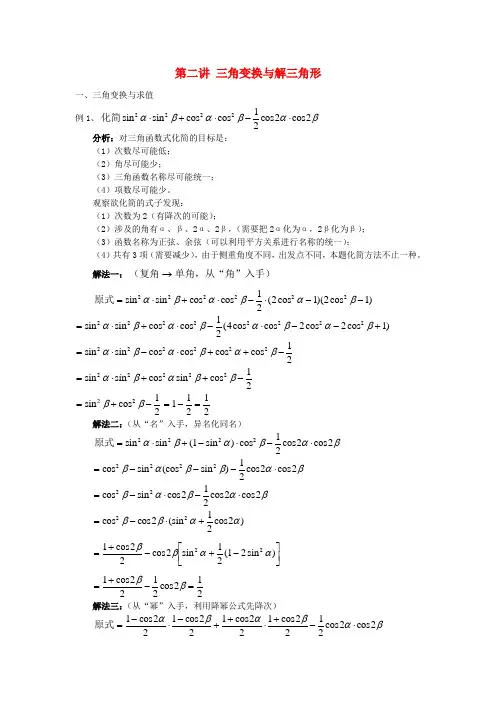 第二讲 三角变换与解三角形
一、三角变换与求值
例1、化简sin²α·sin²β+cos²α·cos²β−½cos2α·cos2β
分析：对三角函数式化简的目标是：
（1）次数尽可能低；
（2）角尽可能少；
（3）三角函数名称尽可能统一；
（4）项数尽可能少。
观察欲化简的式子发现：
（1）次数为2（有降次的可能）；
（2）涉及的角有α、β、2α、2β，（需要把2α化为α，2β化为β）；
（3）函数名称为正弦、余弦（可以利用平方关系进行名称的统一）；
（4）共有3项（需要减少），由于侧重角度不同，出发点不同，本题化简方法不止一种。
解法一：（复角→单角，从“角”入手）
原式=sin²α·sin²β+cos²α·cos²β−½·(2cos²α−1)(2cos²β−1)
=sin²α·sin²β+cos²α·cos²β−½(4cos²α·cos²β−2cos²α−2cos²β+1)
=sin²α·sin²β−cos²α·cos²β+cos²α+cos²β−½
=sin²α·sin²β+cos²αsin²β+cos²β−½
=sin²β+cos²β−½=1−½=½
解法二：（从“名”入手，异名化同名）
原式=sin²α·sin²β+(1−sin²α)·cos²β−½cos2α·cos2β
=cos²β−sin²α(cos²β−sin²β)−½cos2α·cos2β
=cos²β−sin²α·cos2β−½cos2α·cos2β
=cos²β−cos2β·(sin²α+½cos2α)
=(1+cos2β)/2−cos2β[sin²α+½(1−2sin²α)]
=(1+cos2β)/2−½cos2β=½
解法三：（从“幂”入手，利用降幂公式先降次）
原式=(1−cos2α)/2·(1−cos2β)/2+(1+cos2α)/2·(1+cos2β)/2−½cos2α·cos2β